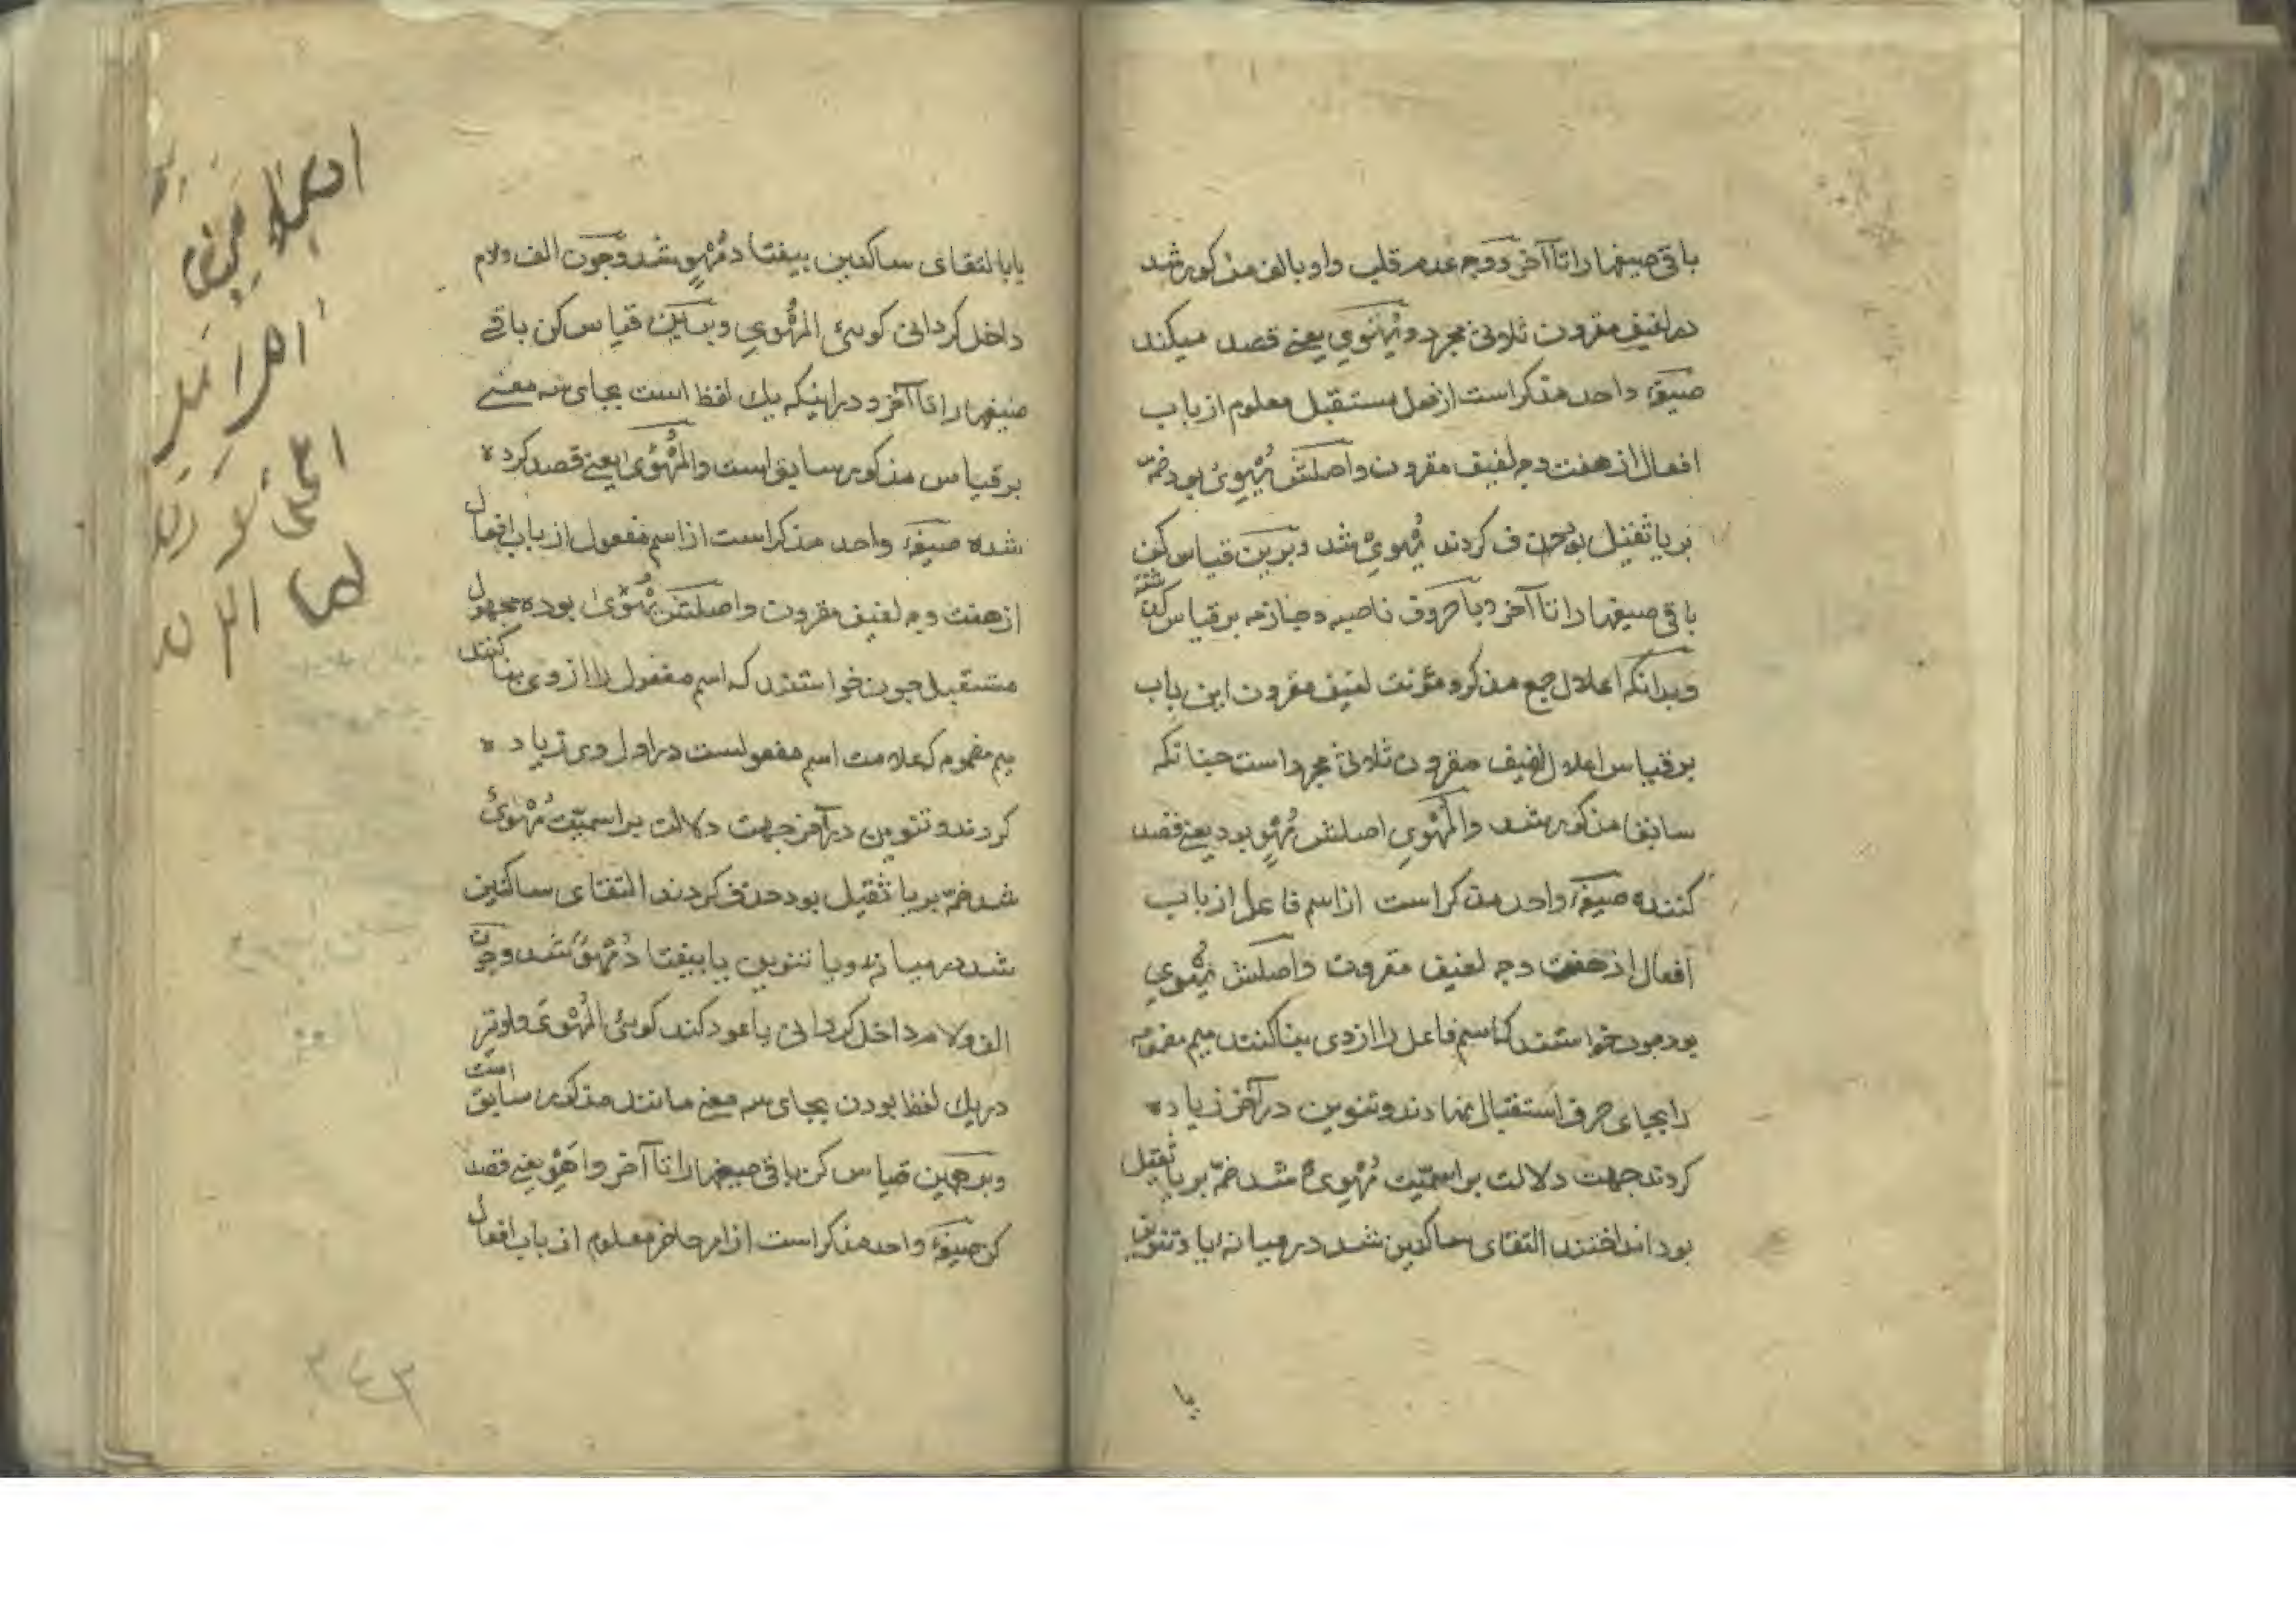 باقی صیغها را تا آخر و وجه عدم قلب واو بالف مذکور شد
در لفیف مقرون ثلاثی مجرد و یُهْوِي یعنے قصد میکند
صیغهٔ واحد مذکر است از فعل مستقبل معلوم از باب
افعال از هفت وجه لفیف مقرون و اصلش یُهْوِيُ بود ضمّه
بر یا ثقیل بود حذف کردند یُهْوِيْ شد و برین قیاس کن
باقی صیغها را تا آخر و با حروف ناصبه و جازمه بر قیاس کن
و بدانکه اعلال جمع مذکر و مؤنث لفیف مقرون این باب
بر قیاس اعلال لفیف مقرون ثلاثی مجرد است چنانکه
سابق مذکور شد والْمُهْوِي اصلش مُهْوٍ بود یعنے قصد
کننده صیغهٔ واحد مذکر است از اسم فاعل از باب
افعال از هفت وجه لفیف مقرون و اصلش یُهْوِي
بود چون خواستند که اسم فاعل را از وی بنا کنند میم مضمومه
را بجای حرف استقبال نهادند و تنوین در آخر زیاده
کردند جهت دلالت بر اسمیّت مُهْوِيٌ شد ضمّه بر یا ثقیل
بود انداختند التقای ساکنین شد در میانهٔ یا و تنوین
یا
یا بالتقای ساکنین بیفتاد مُهْوٍ شد و چون الف و لام
داخل کردانی کویی الْمُهْوِي و برین قیاس کن باقی
صیغها را تا آخر و در اینکه یك لفظ است بجای سه معنے
بر قیاس مذکور سابق است والْمُهْوَى یعنے قصد کرده
شده صیغهٔ واحد مذکر است از اسم مفعول از باب افعال
از هفت وجه لفیف مقرون و اصلش یُهْوَى بوده مجهول
مستقبل چون خواستند که اسم مفعول را از وی بنا کنند
میم مضموم که علامت اسم مفعولست در اول وی زیاده
کردند و تنوین در آخر جهت دلالت بر اسمیّت مُهْوَيٌ
شد ضمّه بر یا ثقیل بود حذف کردند التقای ساکنین
شد در میانهٔ و یا تنوین یا بیفتاد مُهْوًى شد و چون
الف و لام داخل کردانی یا عود کند کویی الْمُهْوَى و او نیز
در یك لفظ بودن بجای سه معنے مانند مذکور سابق است
و بر همین قیاس کن باقی صیغها را تا آخر و اَهْوِ یعنے قصد
کن صیغهٔ واحد مذکر است از امر حاضر معلوم از باب افعال
٣٤٣